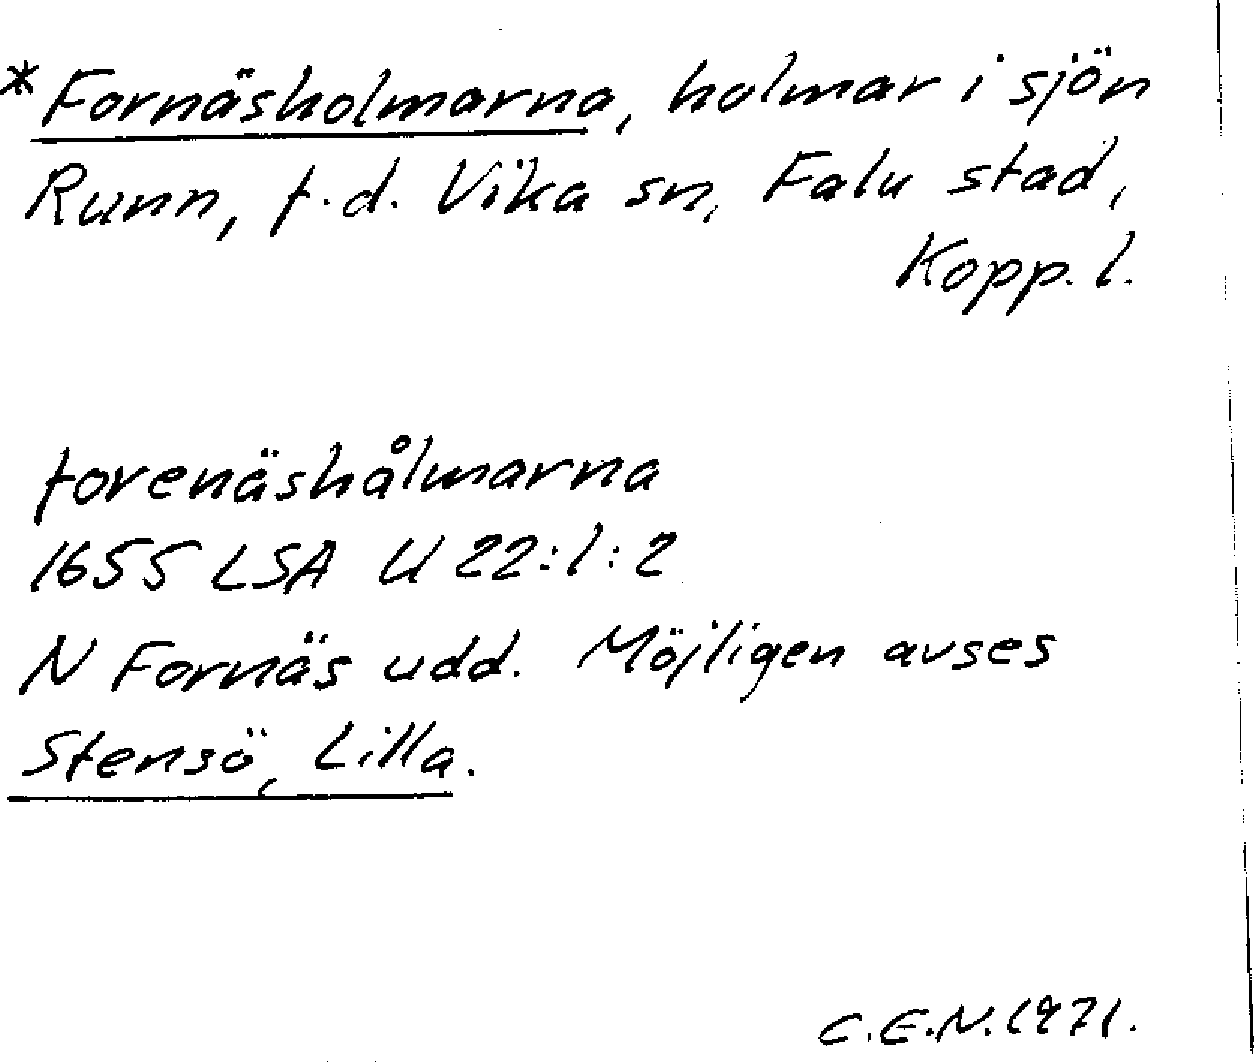 * Fornäsholmarna, holmar i sjön
Runn, f.d. Vika sn, Falu stad,
Kopp. l.
forenäshålmarna
1655 LSA U 22:1:2
N Fornäs udd. Möjligen avses
Stensö, Lilla.
C.E.N. 1971.